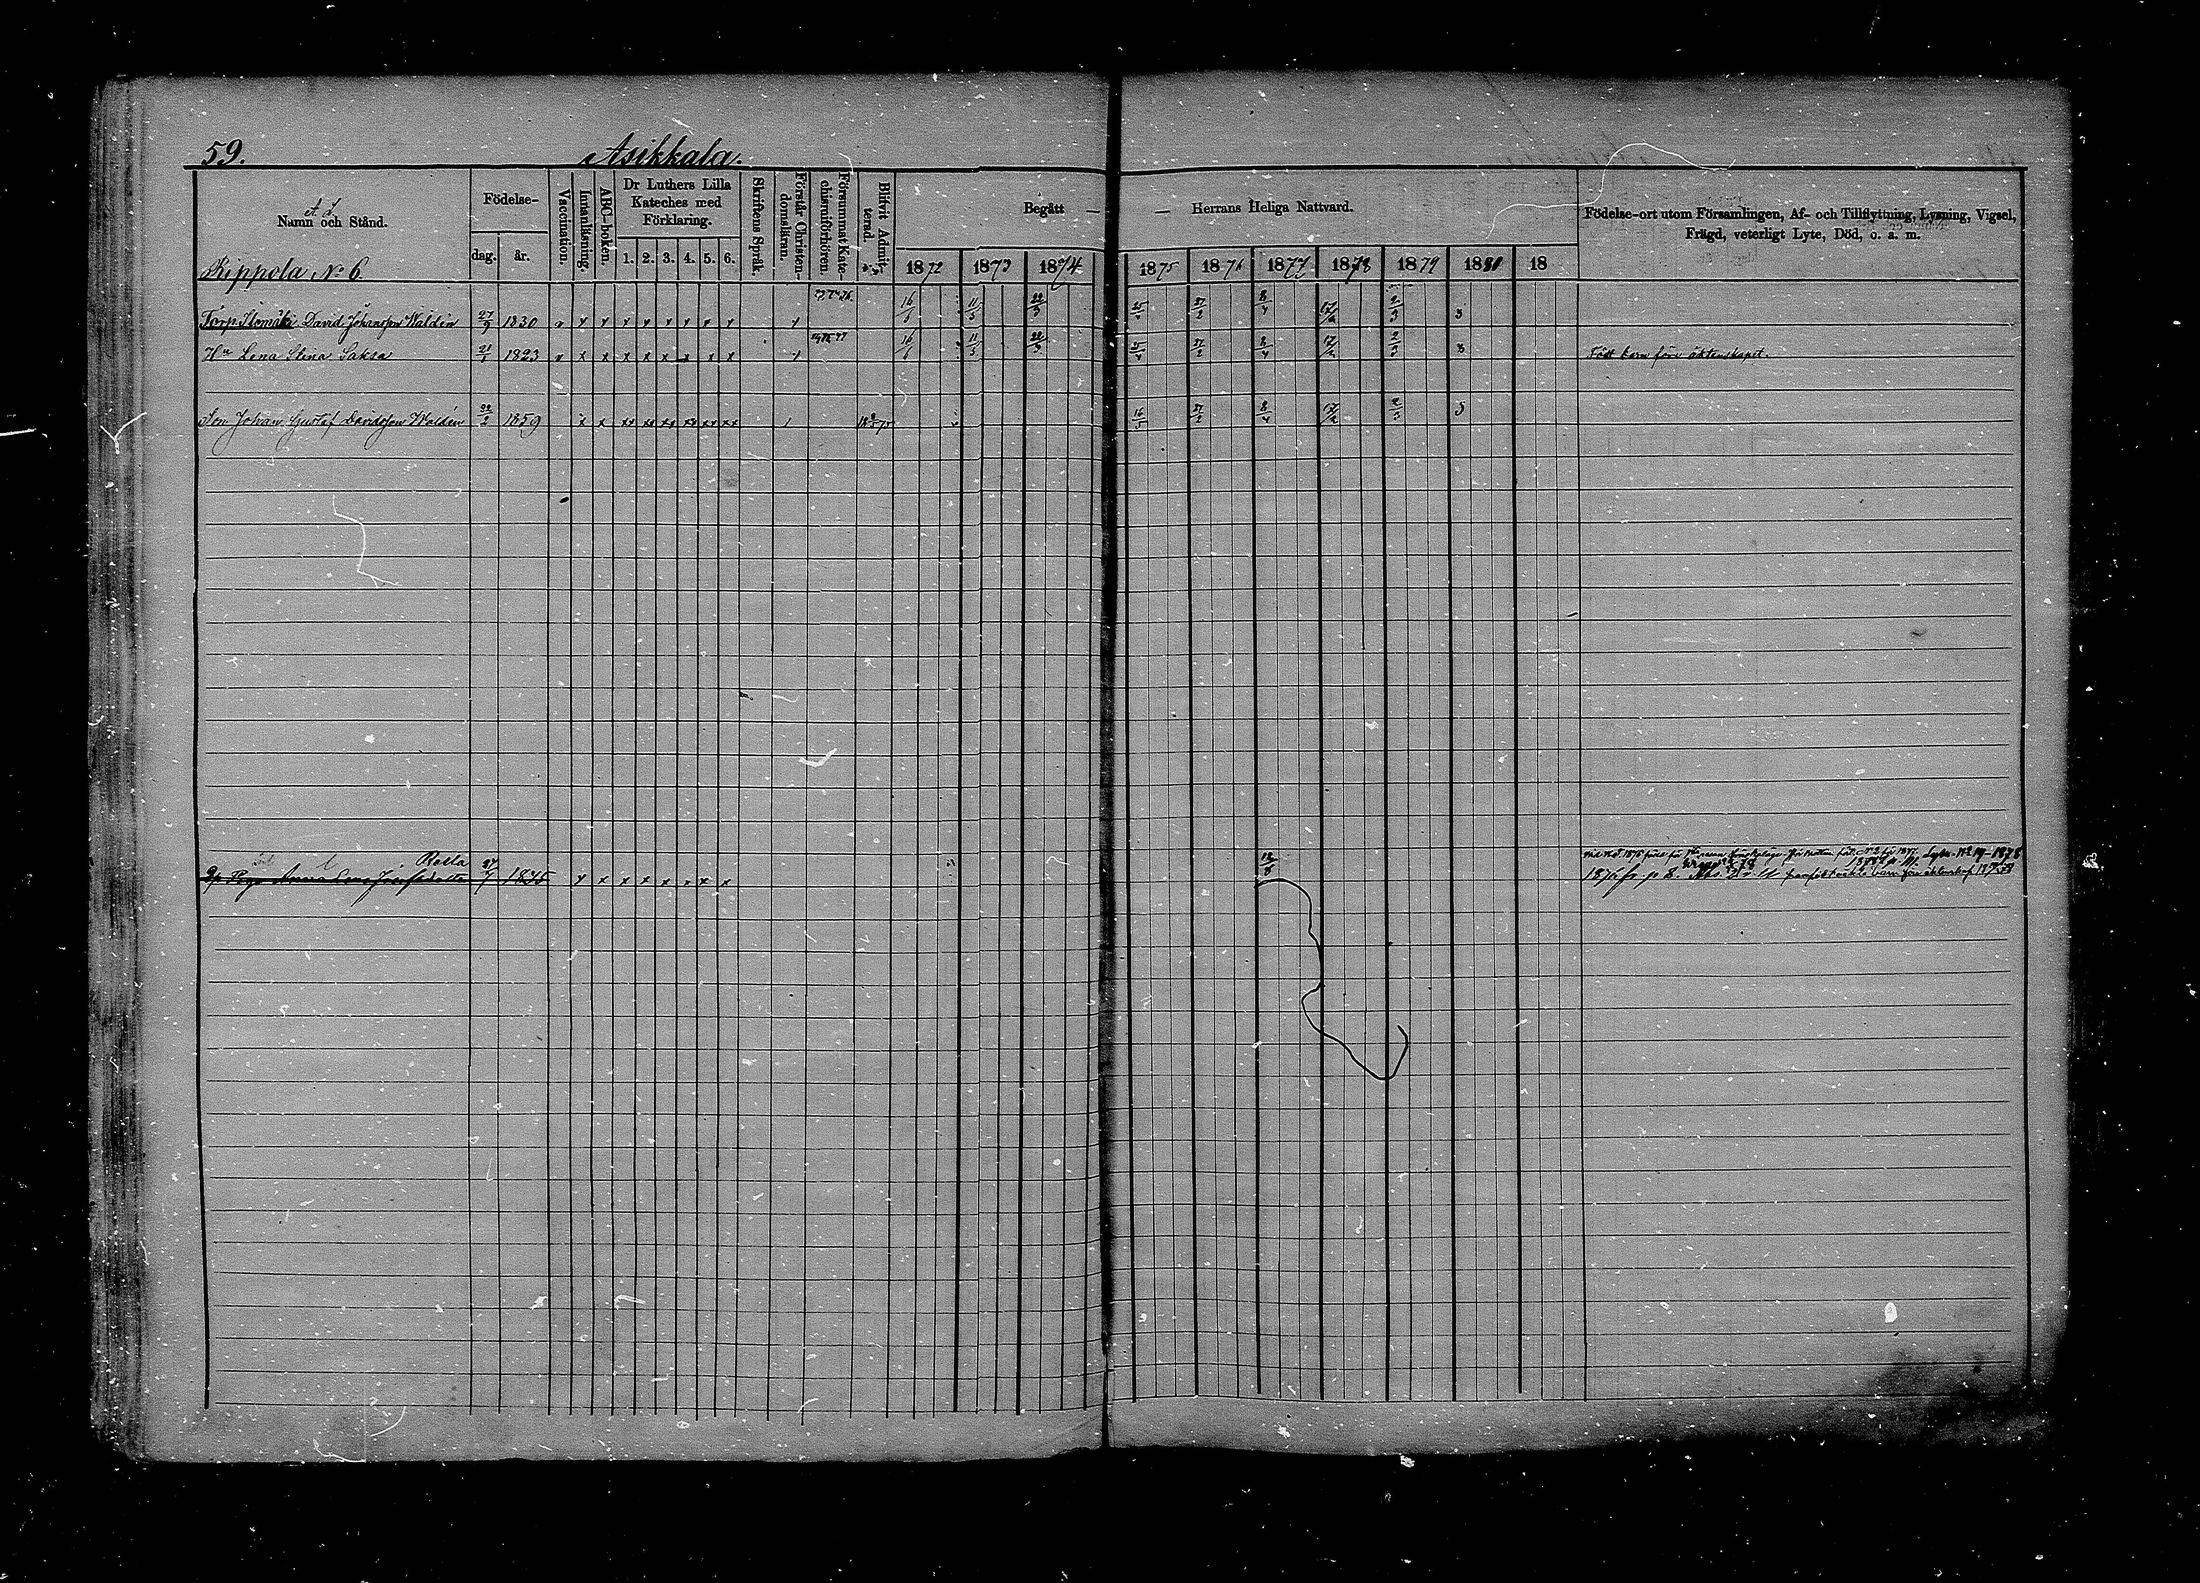 59. Asikkala.
A. I.
Namn och Stånd.
Födelse-
dag. år.
Vaccination.
Innanläsning.
ABC-boken.
Dr Luthers Lilla
Kateches med
Förklaring.
1. 2. 3. 4. 5. 6.
Skriftens Språk.
Förstår Christen-
domsläran.
Försummat Kate-
chismiförhören.
Blifvit Admit-
terad.
Begått — — Herrans Heliga Nattvard.
1872 1873 1874 1875 1876 1877 1878 1879 1880 18
Födelse-ort utom Församlingen, Af- och Tillflyttning, Lysning, Vigsel,
Frägd, veterligt Lyte, Död, o. a. m.
Rippola No 6.
Torp. Ilomäki David Johansson Waldén 27/9 1830 x x x x x x x x x 16/6 11/5 22/3 25/4 27/2 8/4 17/2 2/3 3
Hu Lena Stina Saksa 21/1 1823 x x x x x x x x x 16/6 11/5 22/3 25/4 27/2 8/4 17/2 2/3 3 Födt barn före äktenskapet.
Son Johan Gustaf Davidsson Waldén 22/2 1859 x x xx xx xx xx xx xx 16/5 27/2 8/4 17/2 2/3 3
Rosla
Anna Lena Josefsdotter 27/7 1845 x x x x x x x x 12/8
1878